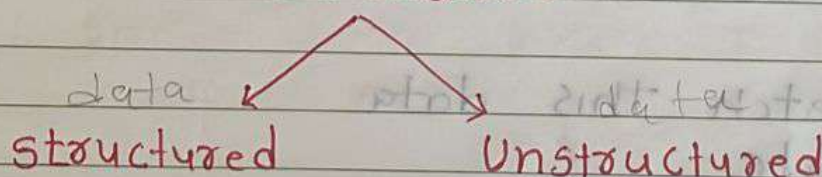 data
structured Unstructured